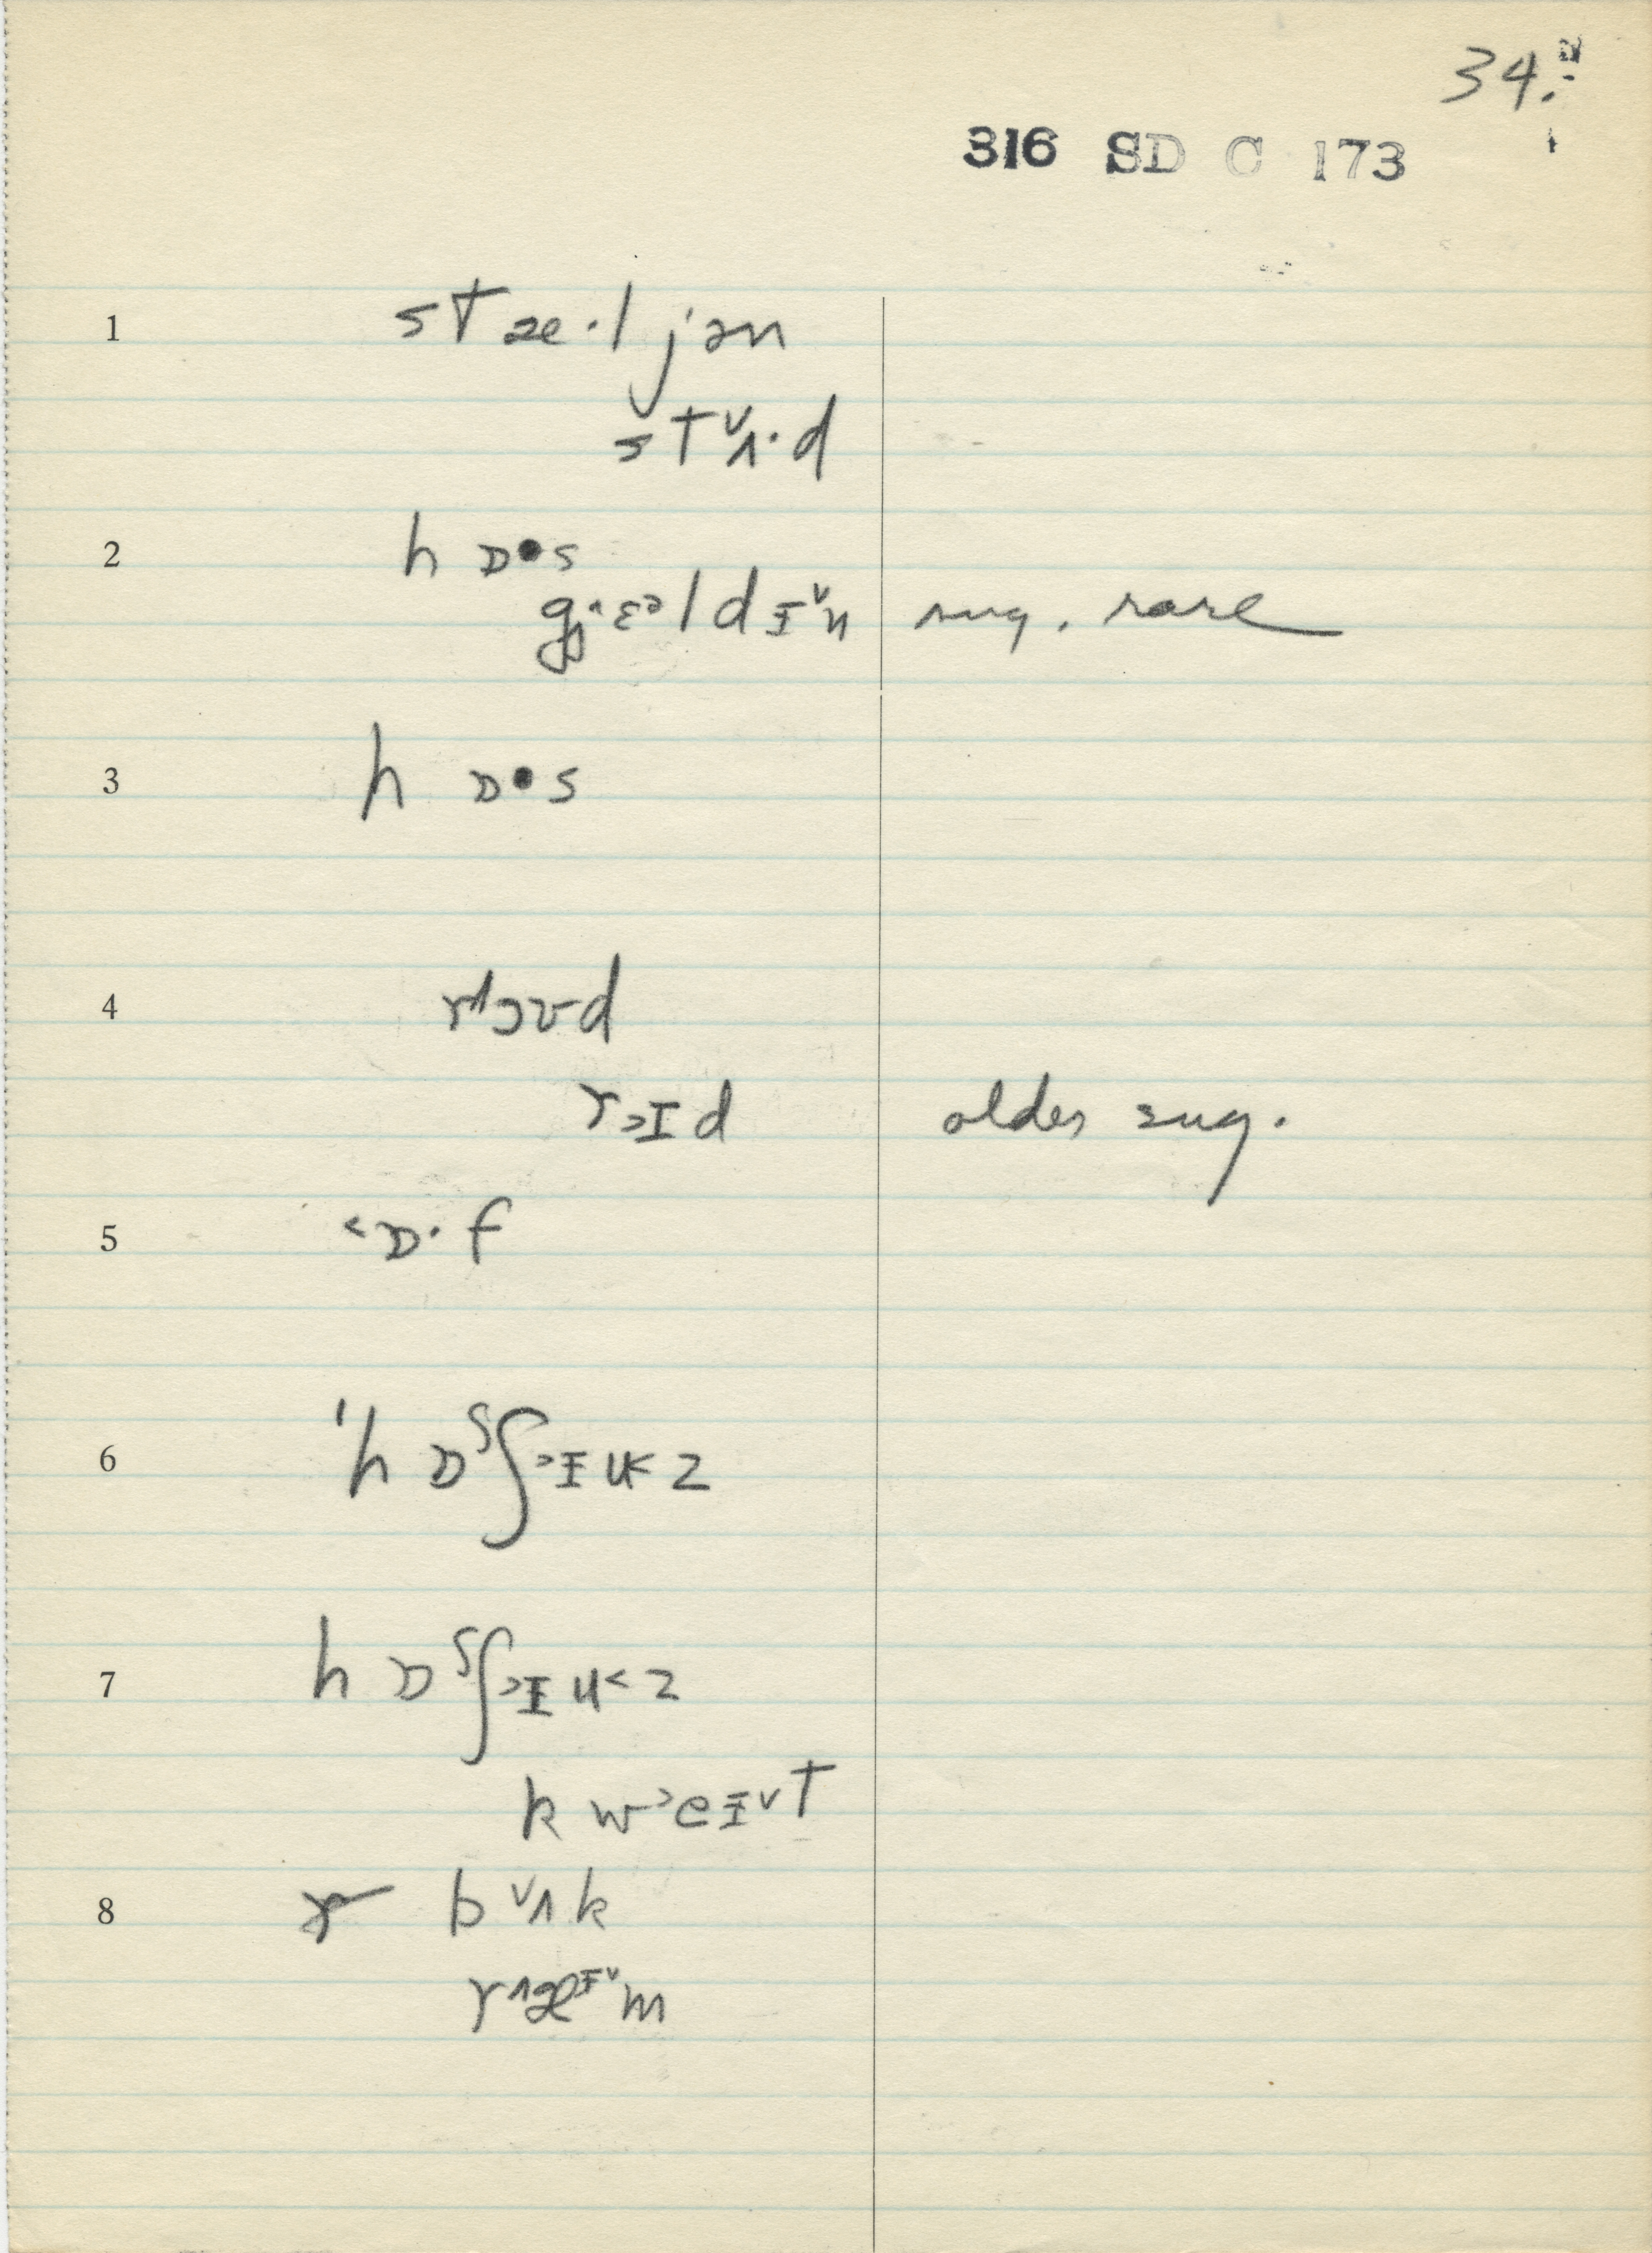 34.
316 SD C 173
1 stæ·ljən
stᵛʌ·d
2 h ɒ•s
gɛldɪᵛn sug. rare
3 h ɒ•s
4 rɔʊd
r>ɪd older sug.
5 <ɒ·f
6 'hɒˢʃ>ɪu<z
7 hɒˢʃ>ɪu<z
kw>eɪᵛt
8 bᵛʌk
r^æɪᵛm